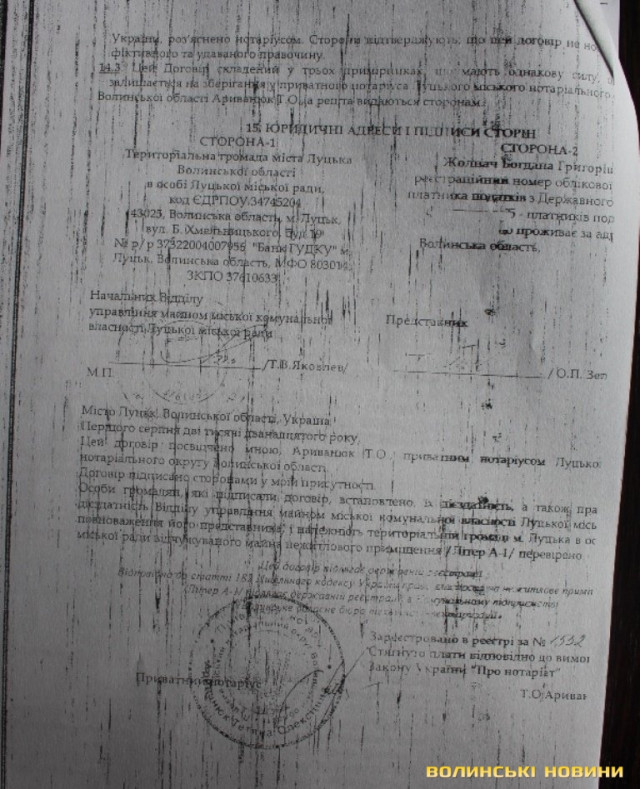 України, роз'яснено нотаріусом. Сторони підтверджують, що цей договір не но
фіктивного та удаваного правочину.
14.3 Цей Договір складений у трьох примірниках, що мають однакову силу,
залишається на зберігання у приватного нотаріуса Луцького міського нотаріального
Волинської області Ариванюк Т.О., а решта видаються сторонам.
15. ЮРИДИЧНІ АДРЕСИ І ПІДПИСИ СТОРІН
СТОРОНА-1
Територіальна громада міста Луцька
Волинської області
в особі Луцької міської ради,
код ЄДРПОУ 34745204
43025, Волинська область, м. Луцьк,
вул. Б. Хмельницького, буд 19
№ р/р 37322004007956 "Банк ГУДКУ" м.
Луцьк, Волинська область, МФО 803014
ЗКПО 37610633
Начальник Відділу
управління майном міської комунальної
власності Луцької міської ради
/Т.В.Яковлев/
М.П.
СТОРОНА-2
Жолнач Богдана Григорі
реєстраційний номер облікової
платника податків з Державного
- платників под
проживає за ад
Волинська область,
Представник
/ О.П. Зел
Місто Луцьк, Волинської області, Україна
Першого серпня дві тисячі дванадцятого року.
Цей договір посвідчено мною, Ариванюк Т.О., приватним нотаріусом Луцько
нотаріального округу Волинської області.
Договір підписано сторонами у моїй присутності.
Особи громадян, які підписали договір, встановлено, їх дієздатність, а також пра
дієздатність Відділу управління майном міської комунальної власності Луцької місь
повноваження його представника, і належність територіальній громаді м. Луцька в ос
міської ради відчужуваного майна нежитлового приміщення /Літер А-1/ перевірено.
Цей договір підлягає державній реєстрації
Відповідно до статті 182 Цивільного кодексу України
Зареєстровано в реєстрі за № 1332
Стягнуто плати відповідно до вимог
Закону України "Про нотаріат"
Приватний нотаріус
Т.О.Ариван
ВОЛИНСЬКІ НОВИНИ